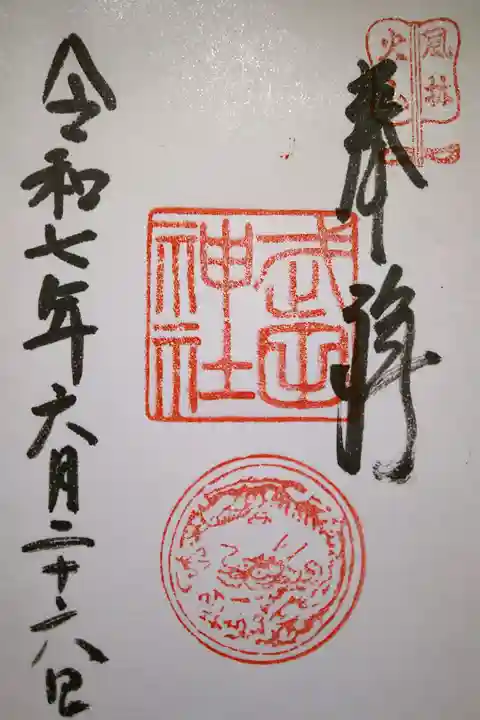 風林
火山
奉拝
武田
神社
令和七年六月二十六日